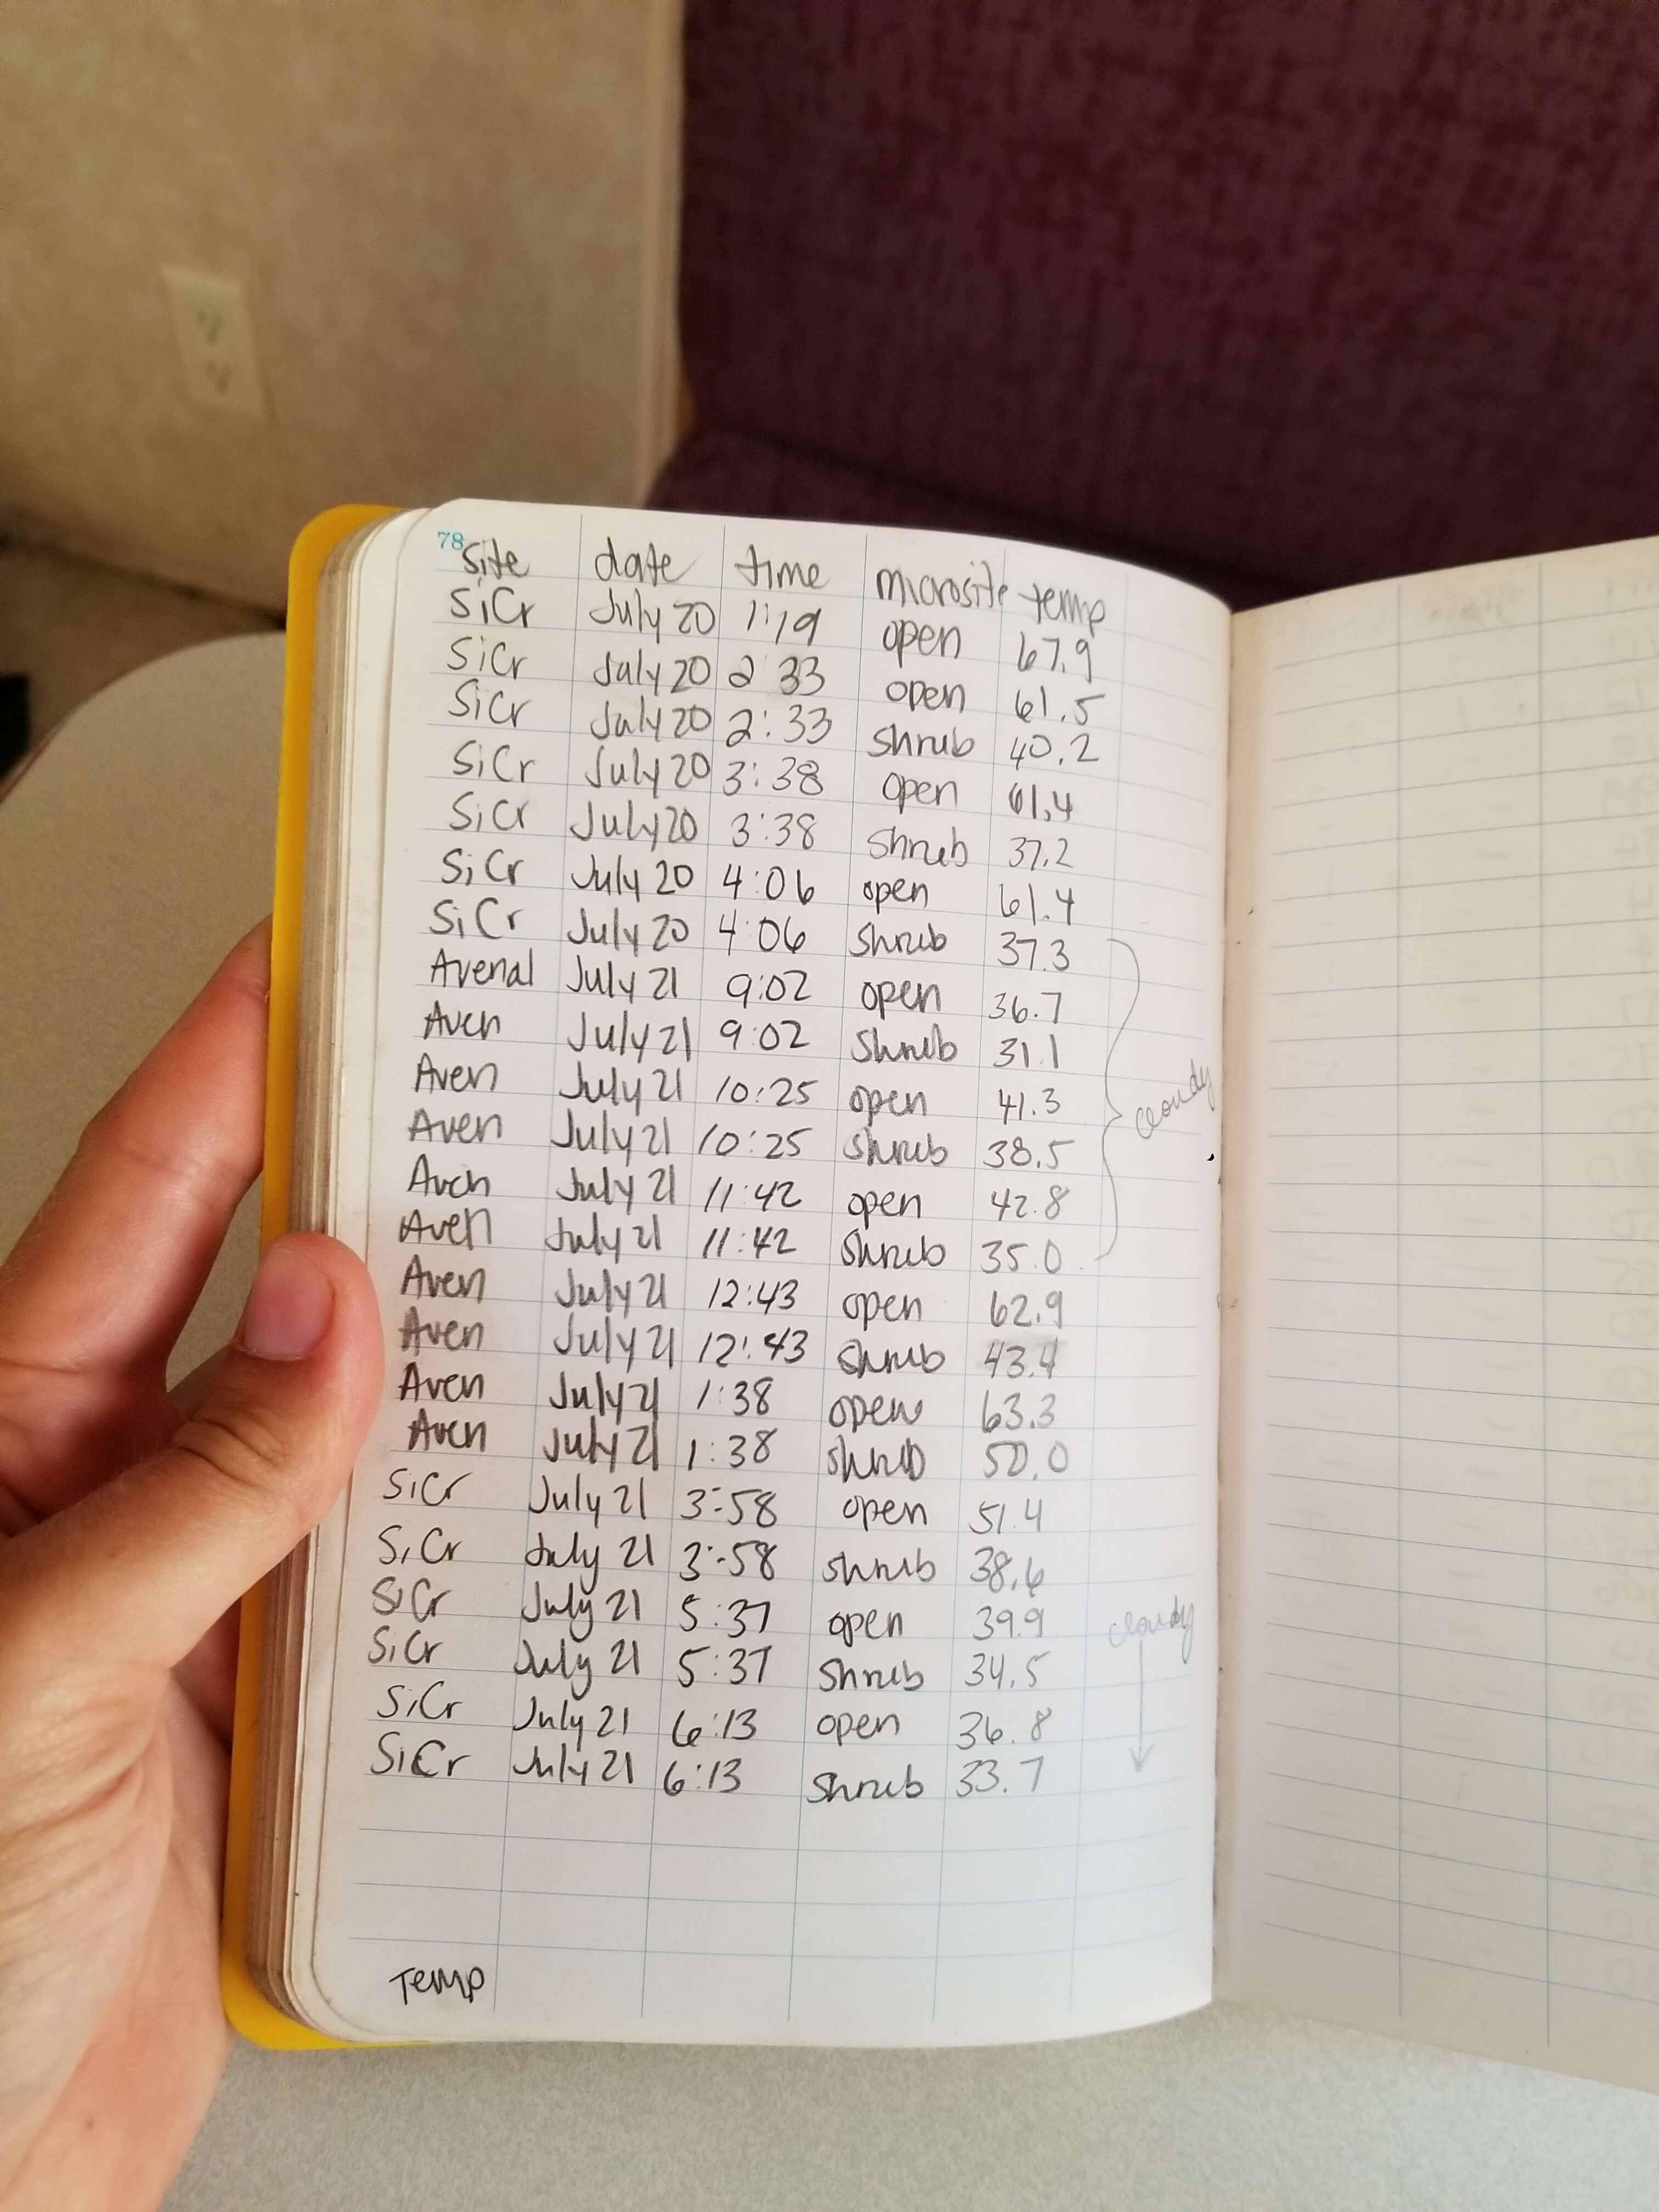 78
site date time microsite temp
SiCr July 20 1:19 open 67.9
SiCr July 20 2 33 open 61.5
SiCr July 20 2:33 shrub 40.2
SiCr July 20 3:38 open 61.4
SiCr July 20 3:38 shrub 37.2
SiCr July 20 4:06 open 61.4
SiCr July 20 4:06 shrub 37.3
Avenal July 21 9:02 open 36.7
Aven July 21 9:02 shrub 31.1
Aven July 21 10:25 open 41.3
cloudy
Aven July 21 10:25 shrub 38.5
Aven July 21 11:42 open 42.8
Aven July 21 11:42 shrub 35.0
Aven July 21 12:43 open 62.9
Aven July 21 12:43 shrub 43.4
Aven July 21 1:38 open 63.3
Aven July 21 1:38 shrub 50.0
SiCr July 21 3:58 open 51.4
SiCr July 21 3:58 shrub 38.6
SiCr July 21 5:37 open 39.9 cloudy
SiCr July 21 5:37 shrub 34.5
SiCr July 21 6:13 open 36.8
SiCr July 21 6:13 shrub 33.7
Temp